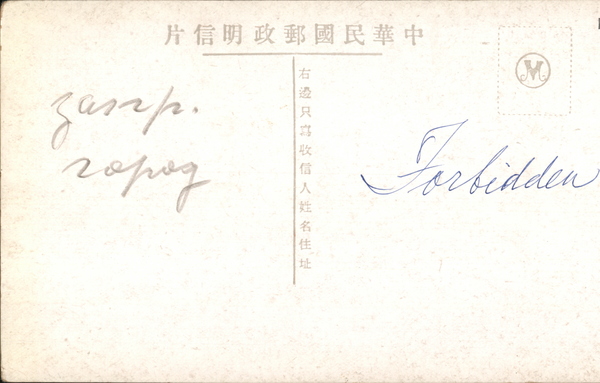 中華民國郵政明信片
右邊只寫收信人姓名住址
запр.
город
Forbidden
M